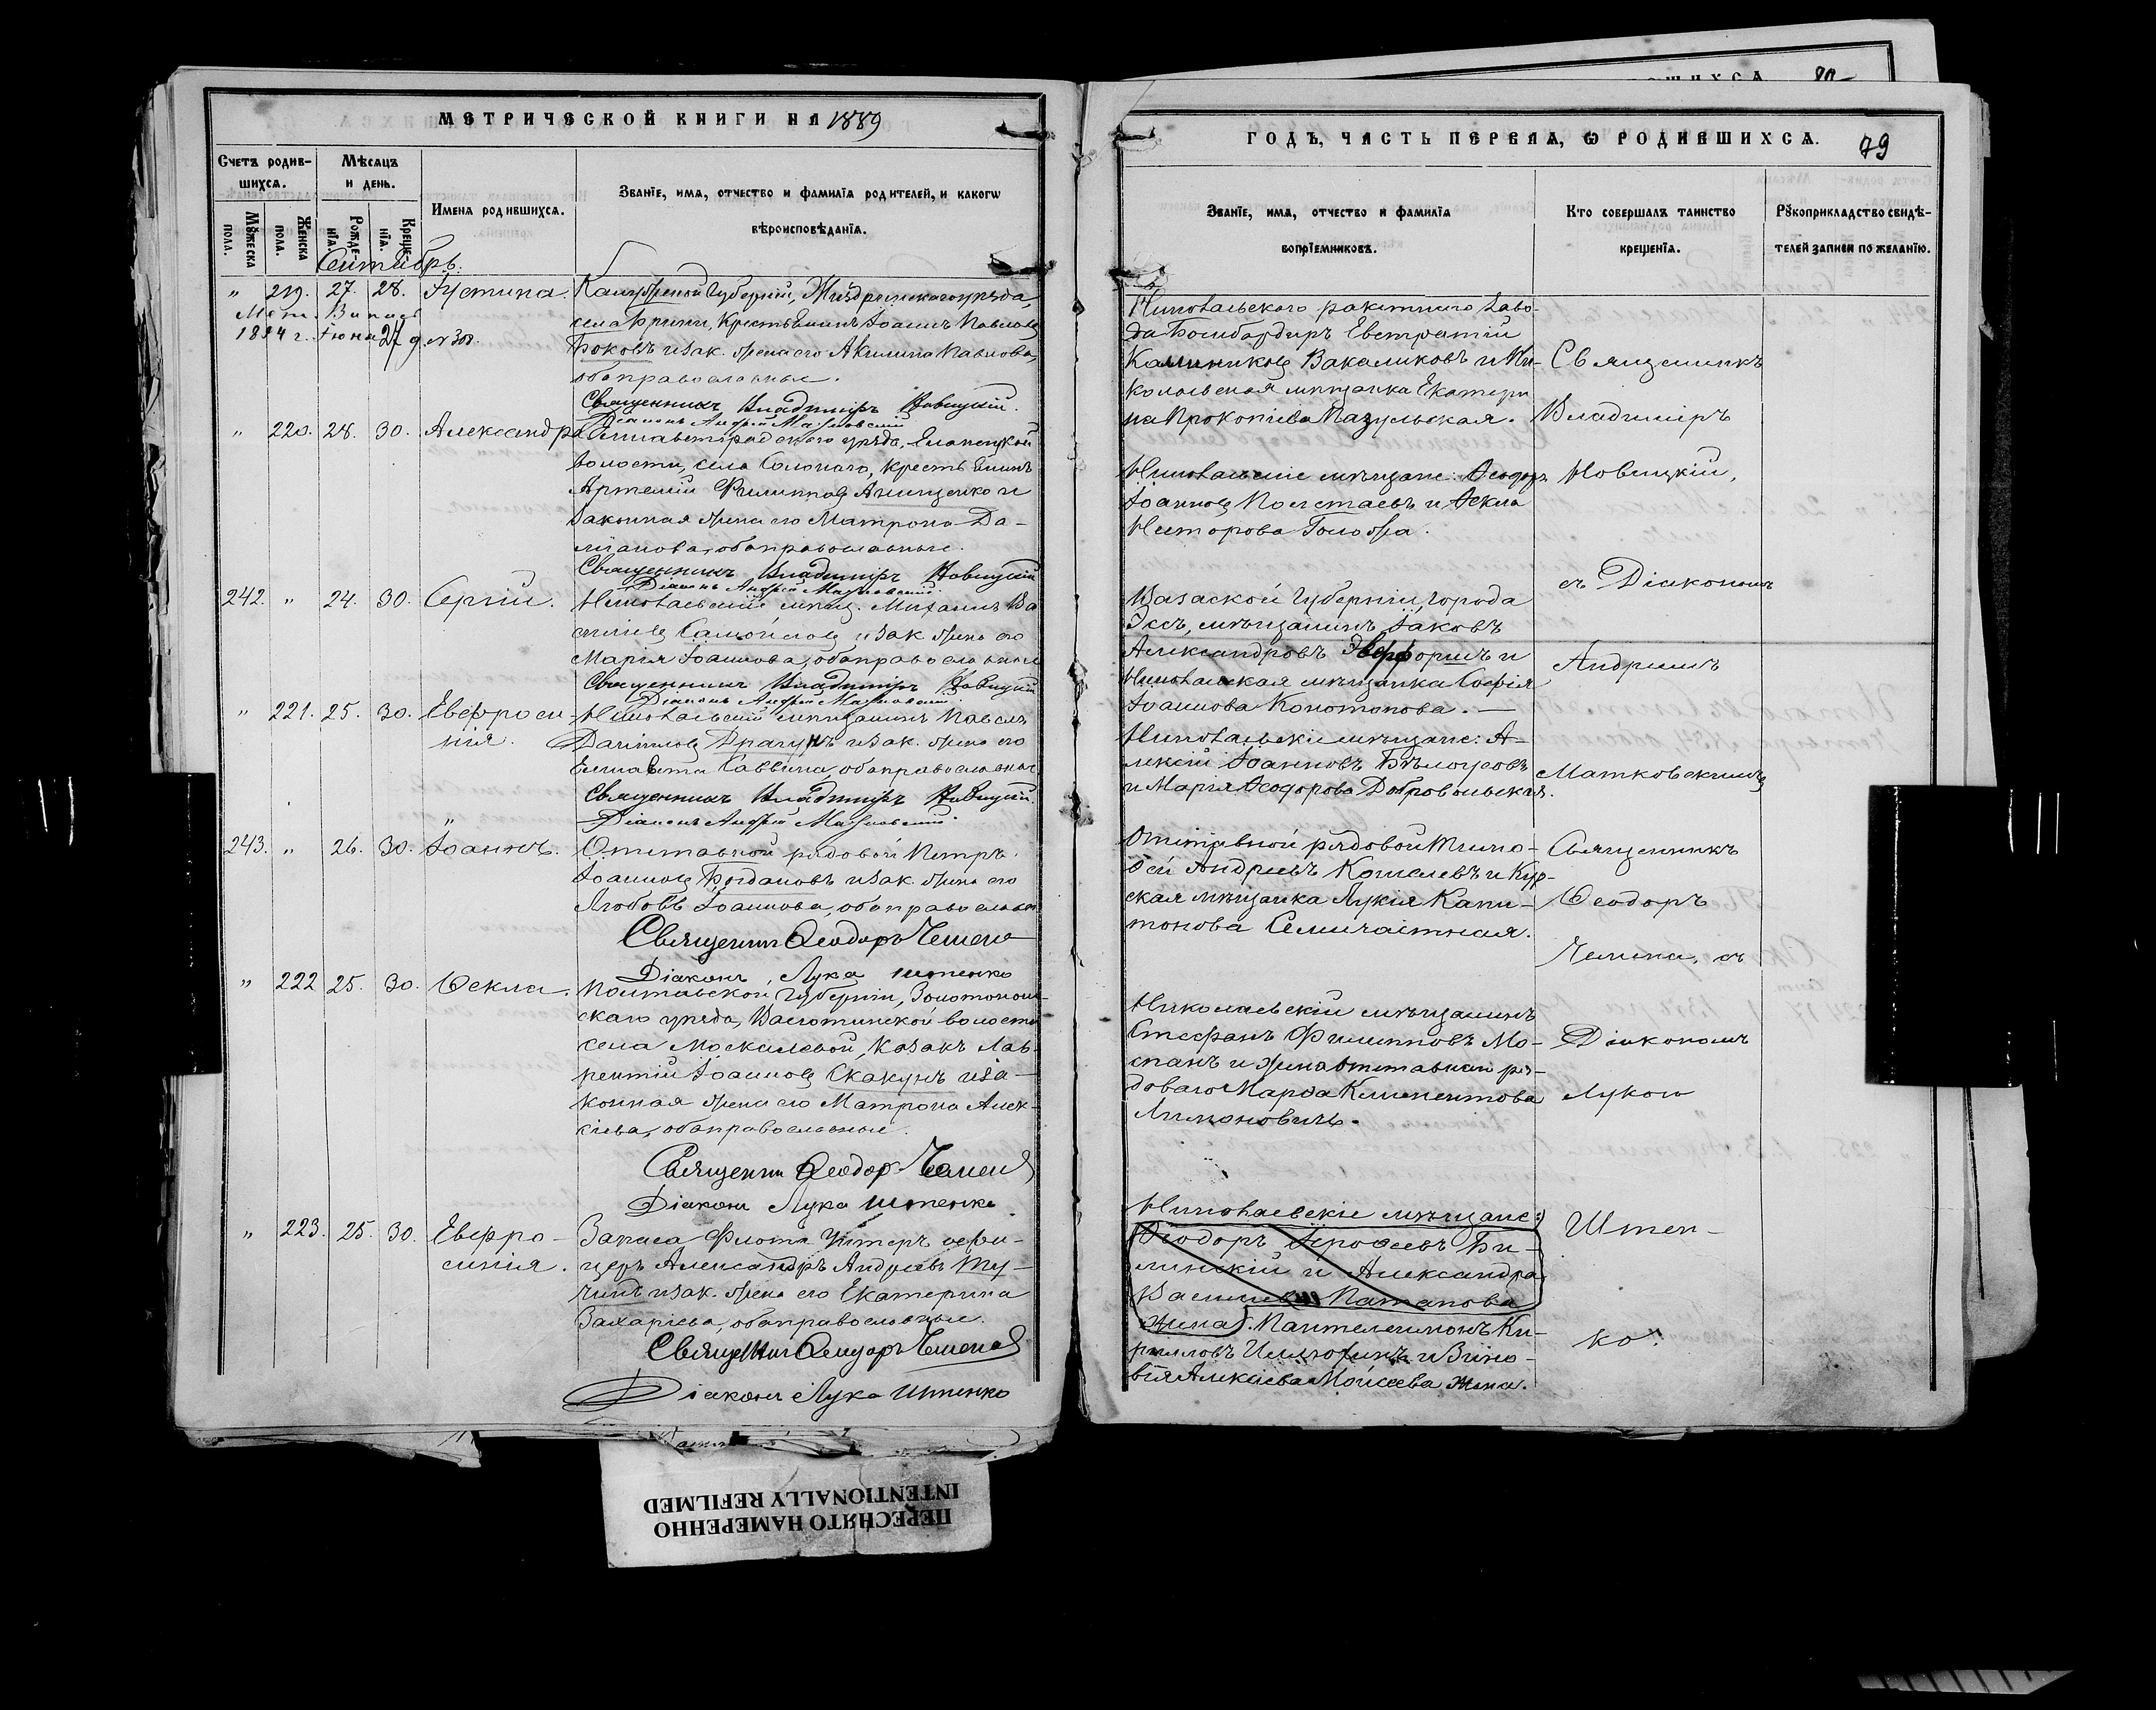 МЕТРИЧЕСКОЙ КНИГИ НА 1889
Счетъ родив-
шихся.
Мѣсяцъ
и день.
Имена родившихся.
Званїе, имя, отчество и фамилїя родителей, и какогѡ
вѣроисповѣданїя.
Мꙋжеска
пола.
Женска
пола.
Рожде-
нїя.
Креще-
нїя.
Сентябрь.
" 219. 27. 28. Іустина. Калужской Губерніи, Жиздринскаго уѣзда,
Мет. Выпись
1894 г. Іюня 27 д. № 308.
села Брыни, крестьянинъ Іоаннъ Павловъ
Боковъ и зак. жена его Акилина Павлова,
оба православные.
Священникъ Владиміръ Новицкій.
Діаконъ Андрей Матковскій
" 220. 28. 30. Александра Елисаветградскаго уѣзда, Еланецкой
волости, села Солонаго, крестьянинъ
Артемій Филипповъ Анищенко и
законная жена его Матрона Да-
міанова, оба православные.
Священникъ Владиміръ Новицкій
Діаконъ Андрей Матковскій.
242. " 24. 30. Сергій. Николаевскій мѣщ. Михаилъ Ва
сильевъ Самойловъ и зак. жена его
Марія Іоаннова, оба православные
Священникъ Владиміръ Новицкій
Діаконъ Андрей Матковскій.
" 221. 25. 30. Евфроси- Николаевскій мѣщанинъ Павелъ
нія. Даніиловъ Драгунъ и зак. жена его
Елисавета Саввина, оба православные
Священникъ Владиміръ Новицкій.
Діаконъ Андрей Матковскій.
243. " 26. 30. Іоаннъ. Отставной рядовой Петръ
Іоанновъ Богдановъ и зак. жена его
Любовь Іоаннова, оба православн
Священник Ѳеодоръ Чемена
Діаконъ Лука Штенко
" 222 25. 30. Ѳекла. Полтавской Губерніи, Золотонош-
скаго уѣзда, волости
села Москаленой, козакъ Лав-
рентій Іоанновъ Скакунъ и за-
конная жена его Матрона Алек-
сіева, оба православные.
Священни Ѳеодор Чемена
Діакон Лука Штенко
" 223. 25. 30. Евфро- Запаса Флота Унтеръ офи-
синія. церъ Александръ Андреевъ Ту-
чинъ и зак. жена его Екатерина
Захаріева, оба православные.
Священник Ѳеодоръ Чемена
Діакон Лука Штенко
ГОДЪ, ЧАСТЬ ПЕРВАЯ, Ѡ РОДИВШИХСЯ. 79
Званїе, имя, отчество и фамилїя
воспрїемниковъ.
Кто совершалъ таинство
крещенїя.
Рꙋкоприкладство свидѣ-
телей записи по желанїю.
Николаевскаго ракетнаго Заво-
да Бомбардиръ Евстратій
Калиниковъ Вакаликовъ и Ни-
колаевская мѣщанка Екатери
на Прокопіева Пазульская.
Священникъ
Владиміръ
Николаевскіе мѣщане: Ѳеодоръ
Іоанновъ Полстаевъ и Ѳекла
Несторова Голобжа.
Новицкій,
съ Діакономъ
губерніи, города
мѣщанинъ Іаковъ
Александровъ и
Николаевская мѣщанка Софія
Іоаннова Конотопова. —
Андреемъ
Николаевскіе мѣщане: А-
лексій Іоанновъ Бѣлоусовъ
и Марія Ѳеодорова Добровольская.
Матковскимъ
Отставной рядовой Тимо-
ѳей Андреевъ Кошелевъ и Кур-
ская мѣщанка Лукія Капи-
тонова Семичастная.
Священникъ
Ѳеодоръ
Чемена, съ
Николаевскій мѣщанинъ
Стефанъ Филипповъ Мо-
спанъ и жена отставнаго ря-
доваго Марѳа Климентова
Лимановичъ.
Діакономъ
Лукою
Николаевскіе мѣщане:
Ѳеодоръ Іероѳеевъ Би-
линскій и Александра
Василиева Патапова
жена. Пантелеимонъ Ки-
рилловъ и Зино-
вія Алексіева Моисеева жена.
Штен-
ко.
ПЕРЕСНЯТО НАМЕРЕННО
INTENTIONALLY REFILMED